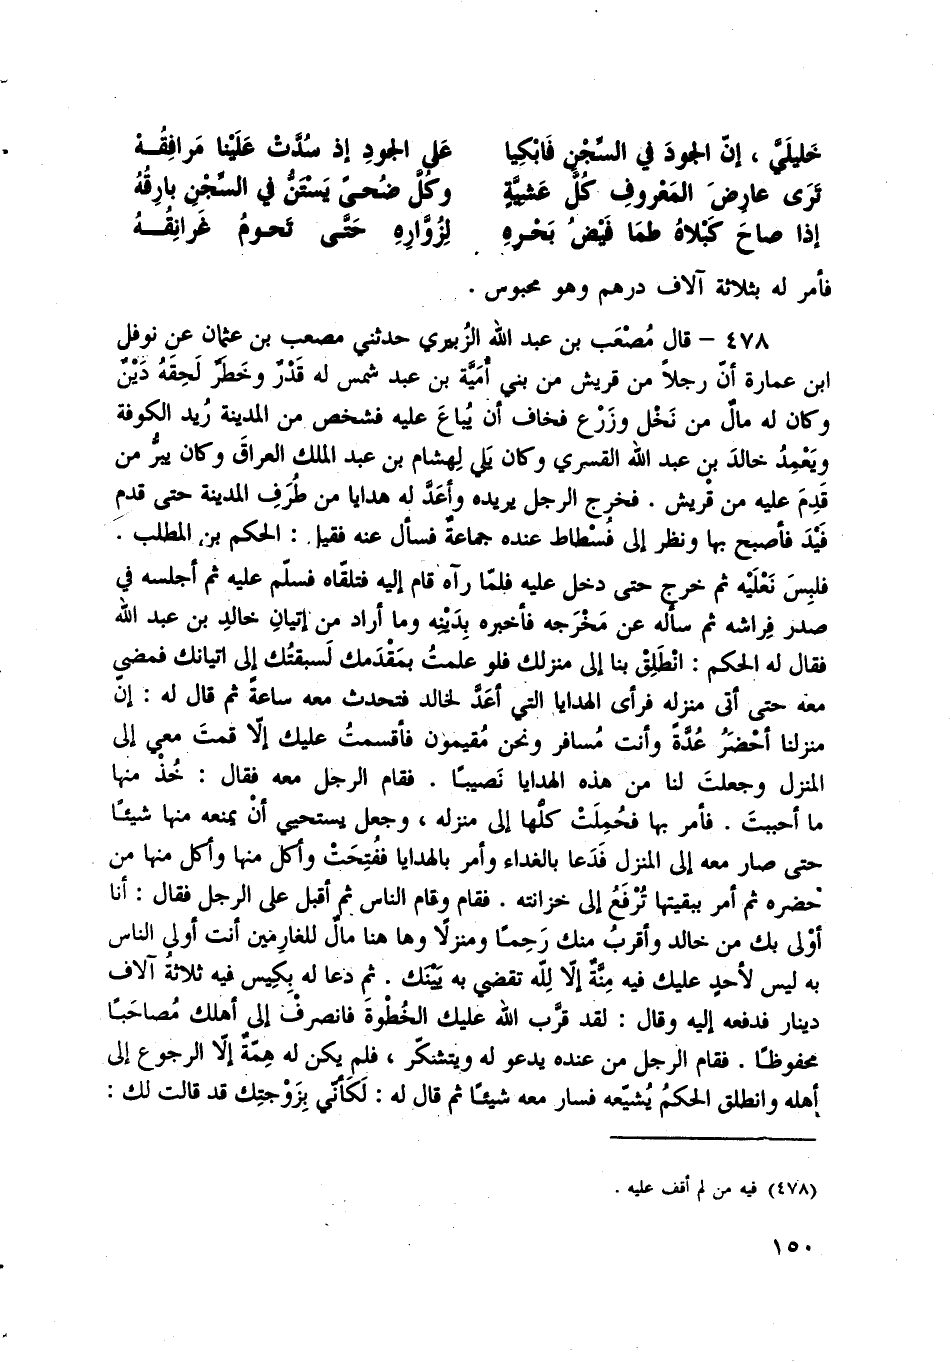 خَليلَيَّ ، إنّ الجودَ في السِّجْنِ فَابْكِيا على الجودِ إذ سُدَّتْ عَلَيْنا مَرافِقُـهْ
تَرَى عارِضَ المَعْروفِ كُلَّ عَشيَّةٍ وكُلَّ ضُحىً يَسْتَنُّ في السِّجْنِ بارِقُهُ
إذا صاحَ كَبْلاهُ طمَا فَيْضُ بَحْرِهِ لِزُوَّارِهِ حَتَّى تَحومُ غَرانِقُـهُ
فأمر له بثلاثة آلاف درهم وهو محبوس .
٤٧٨ – قال مُصْعَب بن عبد الله الزُبيري حدثني مصعب بن عثمان عن نوفل
ابن عمارة أنّ رجلاً من قريش من بني أُمَيَّة بن عبد شمس له قَدْرٌ وخَطَرٌ لَحِقَهُ دَيْنٌ
وكان له مالٌ من نَخْل وزَرْع فخاف أن يُباعَ عليه فشخص من المدينة رُيد الكوفة
ويَعْمِدُ خالدَ بن عبد الله القسري وكان يَلي لِهشام بن عبد الملك العراقَ وكان يبرُّ من
قَدِمَ عليه من قْريش . فخرج الرجل يريده وأعَدَّ له هدايا من طُرَفِ المدينة حتى قدمِ
فَيْدَ فأصبح بها ونظر إلى فُسْطاط عنده جماعةٌ فسأل عنه فقيل : الحكم بن المطلب .
فلبِسَ نَعْلَيْه ثم خرج حتى دخل عليه فلمّا رآه قام إليه فتلقّاه فسلّم عليه ثم أجلسه في
صدر فِراشه ثم سأله عن مَخْرَجه فأخبره بِدَيْنِه وما أراد من إتيانِ خالدِ بن عبد الله
فقال له الحكم : انْطَلِقْ بنا إلى منزلك فلو علمتُ بمَقْدَمك لَسبقتُك إلى اتيانك فمضى
معه حتى أتى منزله فرأى الهدايا التي أعَدَّ لخالد فتحدث معه ساعةً ثم قال له : إنّ
منزلنا أحْضَرُ عُدَّةً وأنت مُسافر ونحن مُقيمون فأقسمتُ عليك إلّا قمتَ معي إلى
المنزل وجعلتَ لنا من هذه الهدايا نَصيبًا . فقام الرجل معه فقال : خُذْ منها
ما أحببتَ . فأمر بها فحُمِلَتْ كلُّها إلى منزله ، وجعل يستحيي أنْ يمنعه منها شيئًا
حتى صار معه إلى المنزل فَدَعا بالغداء وأمر بالهدايا ففُتِحَتْ وأكل منها وأكل منها من
حْضره ثم أمر ببقيتها تُرْفَعُ إلى خزانته . فقام وقام الناس ثم أقبل على الرجل فقال : أنا
أوْلى بك من خالد وأقربُ منك رَحِمًا ومنزلًا وها هنا مالٌ للغارِمين أنت أولى الناس
به ليس لأحدٍ عليك فيه مِنَّةٌ إلّا لِلّه تقضي به يَيْنَك . ثم دعا له بِكِيس فيه ثلاثةُ آلاف
دينار فدفعه إليه وقال : لقد قرَّب الله عليك الخُطْوةَ فانصرفْ إلى أهلك مُصاحَبًا
محفوظًا . فقام الرجل من عنده يدعو له ويتشكّر ، فلم يكن له هِمّةٌ إلّا الرجوع إلى
أهله وانطلق الحكمُ يُشيّعه فسار معه شيئًا ثم قال له : لَكَأنّي بِزَوْجتِك قد قالت لك :
(٤٧٨) فيه من لم أقف عليه .
١٥٠